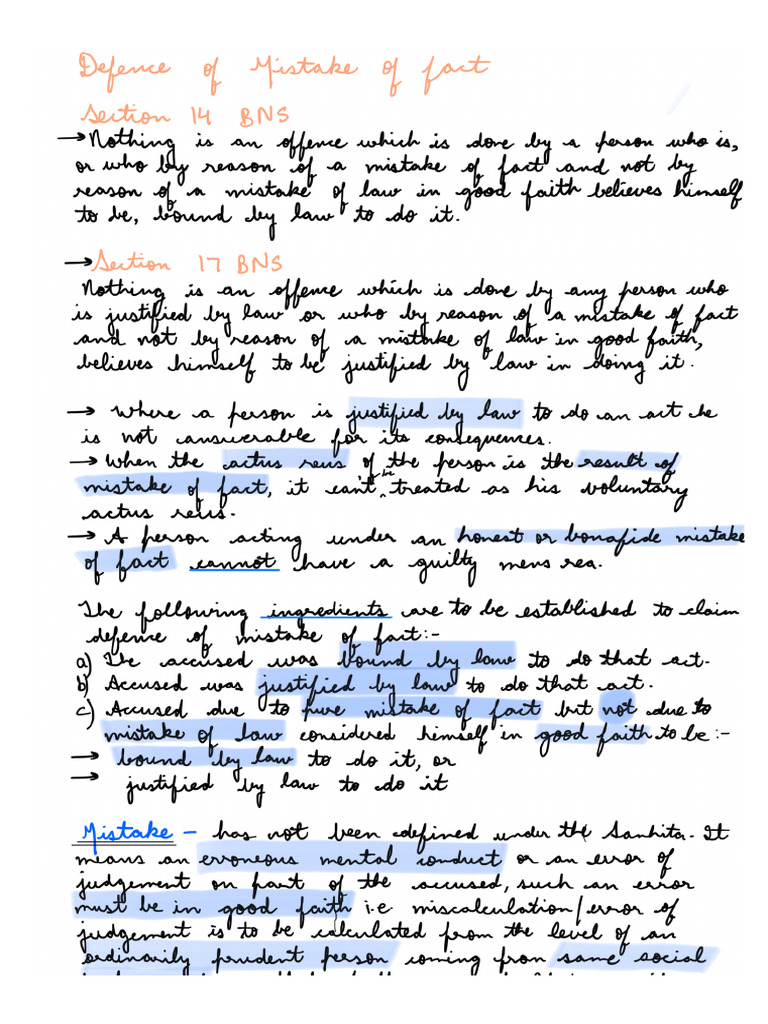 Defence of Mistake of fact
Section 14 BNS
→ Nothing is an offence which is done by a person who is,
or who by reason of a mistake of fact and not by
reason of a mistake of law in good faith believes himself
to be, bound by law to do it.
→ Section 17 BNS
Nothing is an offence which is done by any person who
is justified by law or who by reason of a mistake of fact
and not by reason of a mistake of law in good faith,
believes himself to be justified by law in doing it.
→ Where a person is justified by law to do an act he
is not answerable for its consequences.
→ When the actus reus of the person is the result of
mistake of fact, it can't be treated as his voluntary
actus reus.
→ A person acting under an honest or bonafide mistake
of fact cannot have a guilty mens rea.
The following ingredients are to be established to claim
defence of mistake of fact:-
a) The accused was bound by law to do that act.
b) Accused was justified by law to do that act.
c) Accused due to pure mistake of fact but not due to
mistake of law considered himself in good faith to be:-
→ bound by law to do it, or
→ justified by law to do it
Mistake - has not been defined under the Sanhita. It
means an erroneous mental conduct or an error of
judgement on part of the accused, such an error
must be in good faith i.e miscalculation/error of
judgement is to be calculated from the level of an
ordinarily prudent person coming from same social